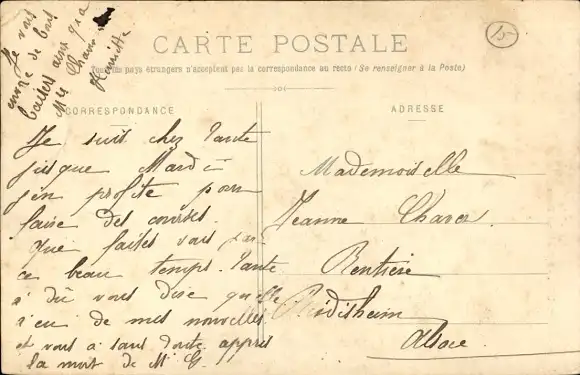 CARTE POSTALE
Tous les pays étrangers n'acceptent pas la correspondance au recto (Se renseigner à la Poste)
CORRESPONDANCE
ADRESSE
15
Je vous
envoie de bons
baisers ainsi qu'a
Mr
Henriette
Je suis chez tante
jusque Mardi
j'en profite pour
faire des courses.
Que faites vous par
ce beau temps. tante
a dû vous dire qu'elle
a eu de mes nouvelles
et vous a sans doute appris
la mort de Mr G.
Mademoiselle
Jeanne
Rentière
Ridisheim
Alsace.